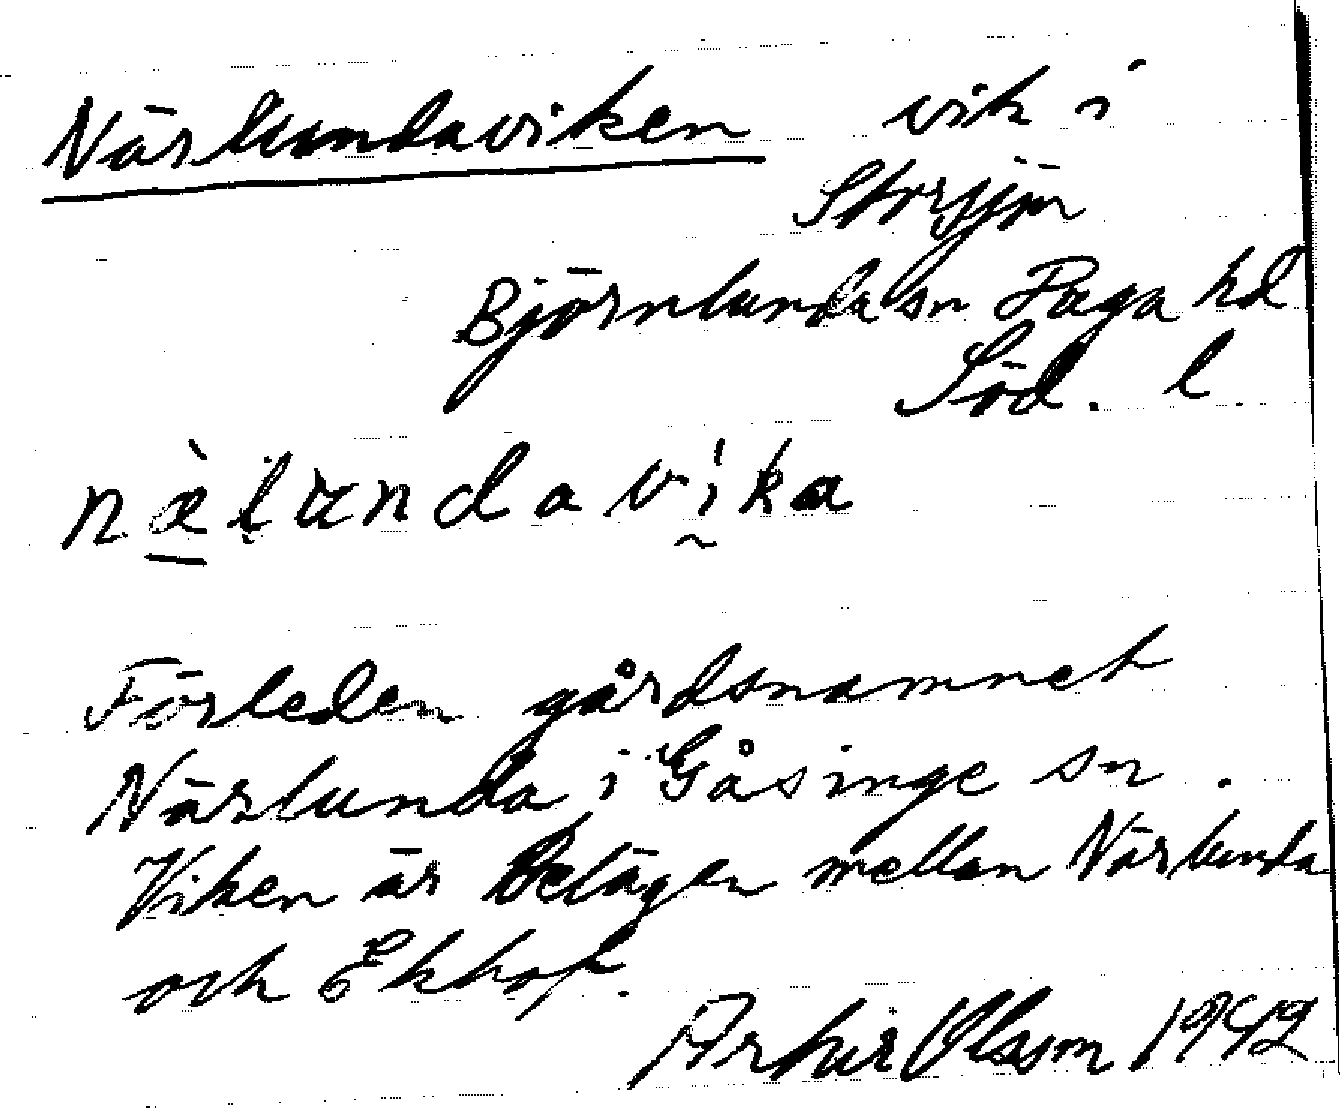 Närlundaviken vik i
Storsjön
Björnlunda sn Daga hd
Söd. l.
nælundavika
Förleden gårdsnamnet
Närlunda i Gåsinge sn.
Viken är Belägen mellan Närlunda
och Ekhof.
Artur Olsson 1942